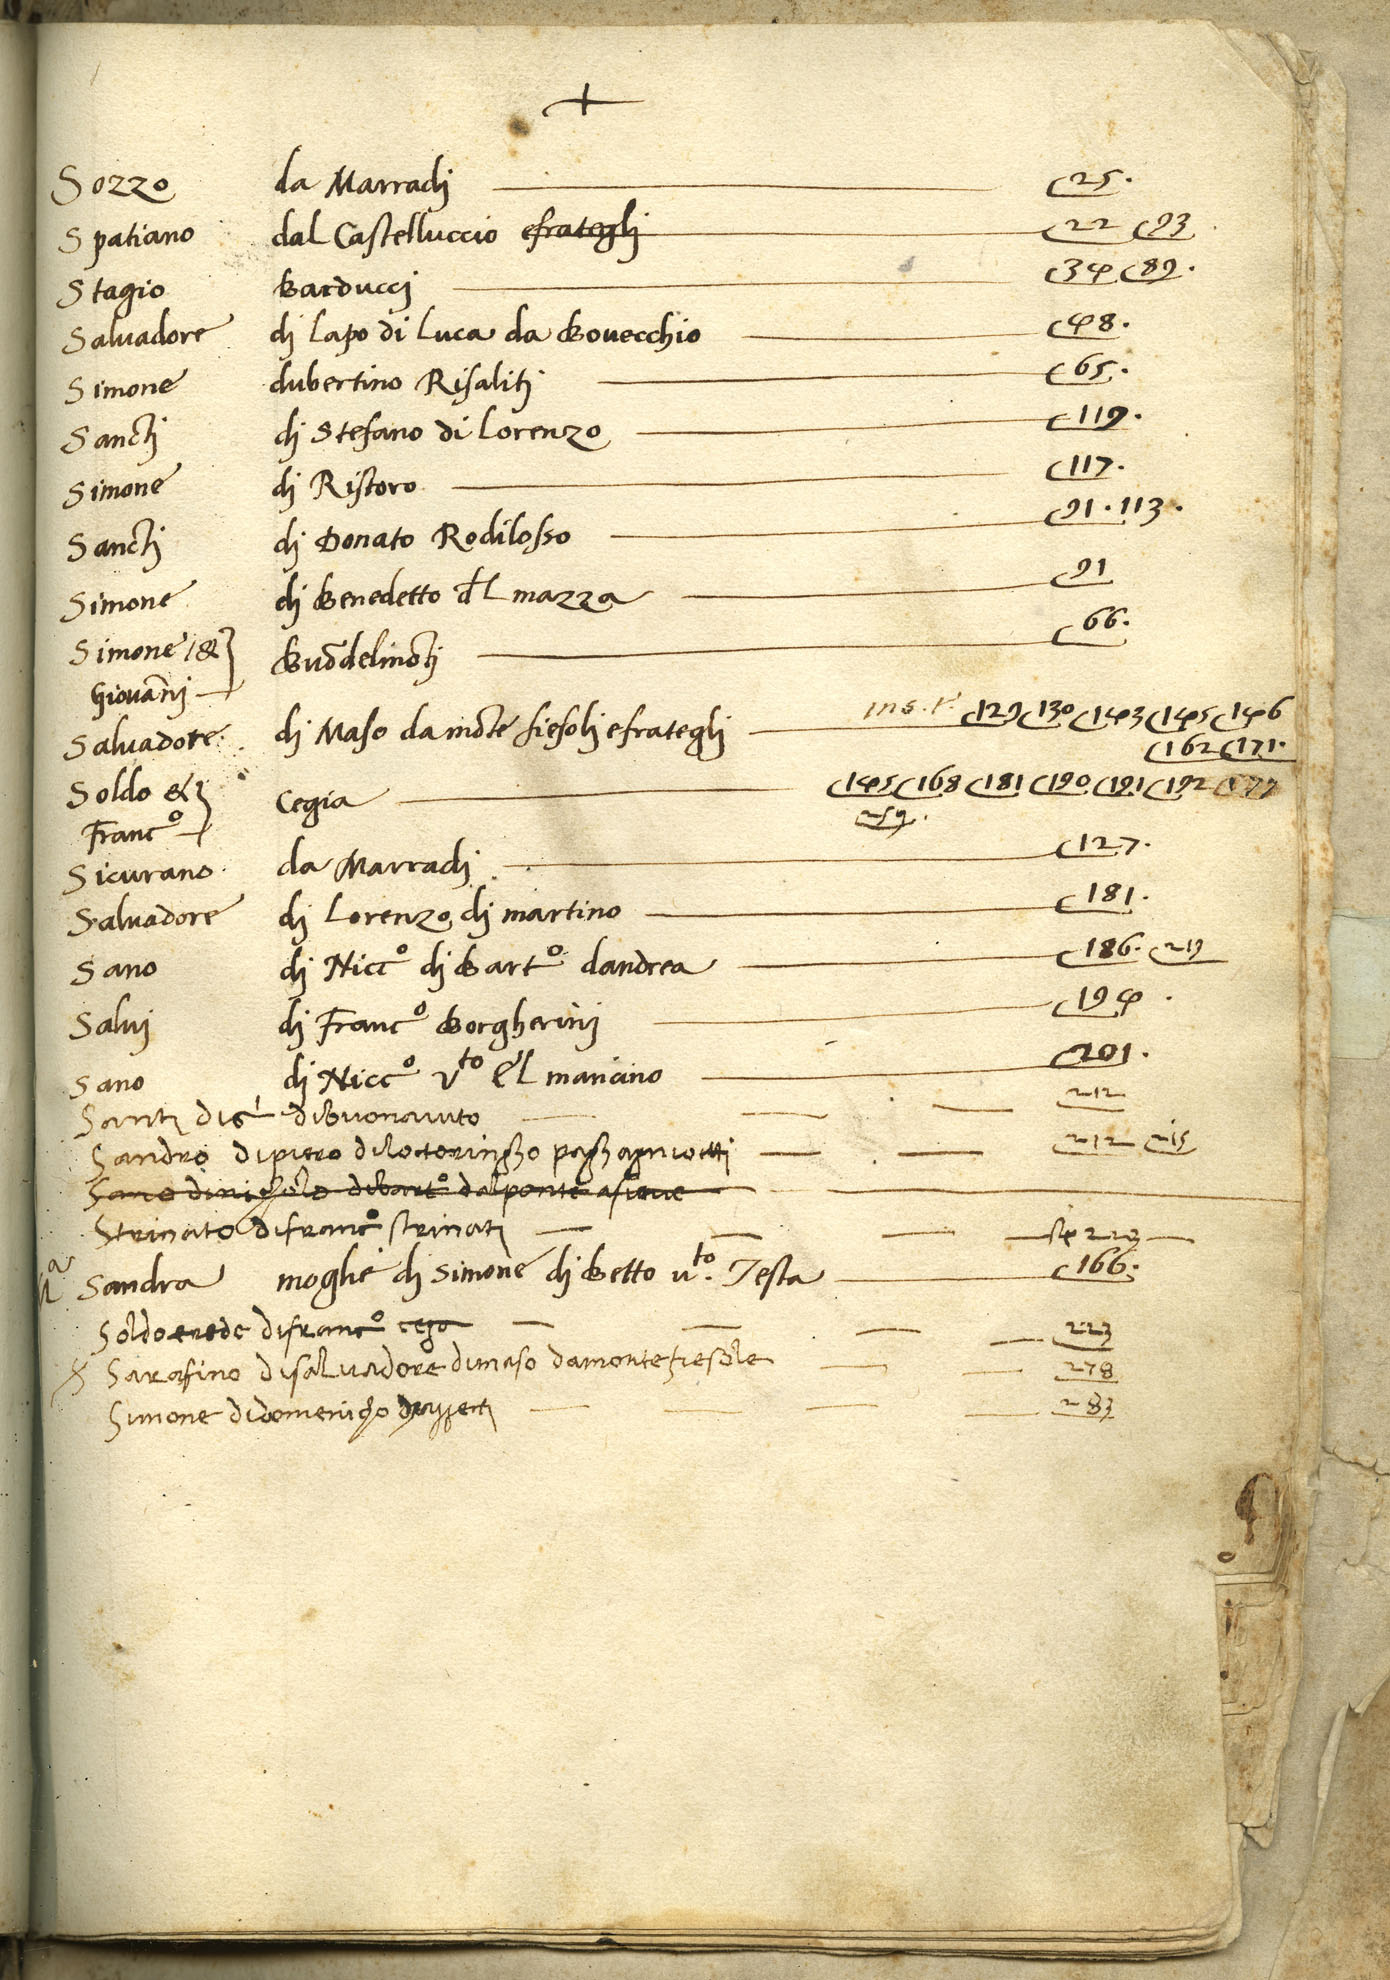 +
Sozzo da Marradj 25.
Spatiano dal Castelluccio efrategli 22 93
Stagio Barduccj 34 89.
Saluadore dj Lapo di Luca da Bouecchio 48.
Simone dubertino Risalitj 65.
Sanctj dj Stefano di Lorenzo 119.
Simone dj Ristoro 117.
Sanctj dj Donato Rodilosso 91. 113.
Simone dj Benedetto dl mazza 91
Simone & Buōdelmōtj 66.
Giouānj
Saluadore dj Maso da mōte fiesolj efrateglj 129 130 143 145 146
162 171.
Soldo & Cegia 145 168 181 190 191 192
Francº 259.
Sicurano da Marradj 127.
Saluadore dj Lorenzo dj martino 181.
Sano dj Niccº dj Bartº dandrea 186. 219
Saluj dj Francº Borgherinj 194.
Sano dj Niccº vto el mancino 201.
Santj di dibuonauuto 212
Sandro dipiero dilotteringho 212 215
Sano dinicholo dibartº dalponte asieue
Strinato difrancº strinatj 223
Sandra moglie dj Simone dj Betto uto. Testa 166.
Soldo erede difrancº cegia 223
Sarafino disaluadore dimaso damontefiesole 278
Simone didomenicho 283